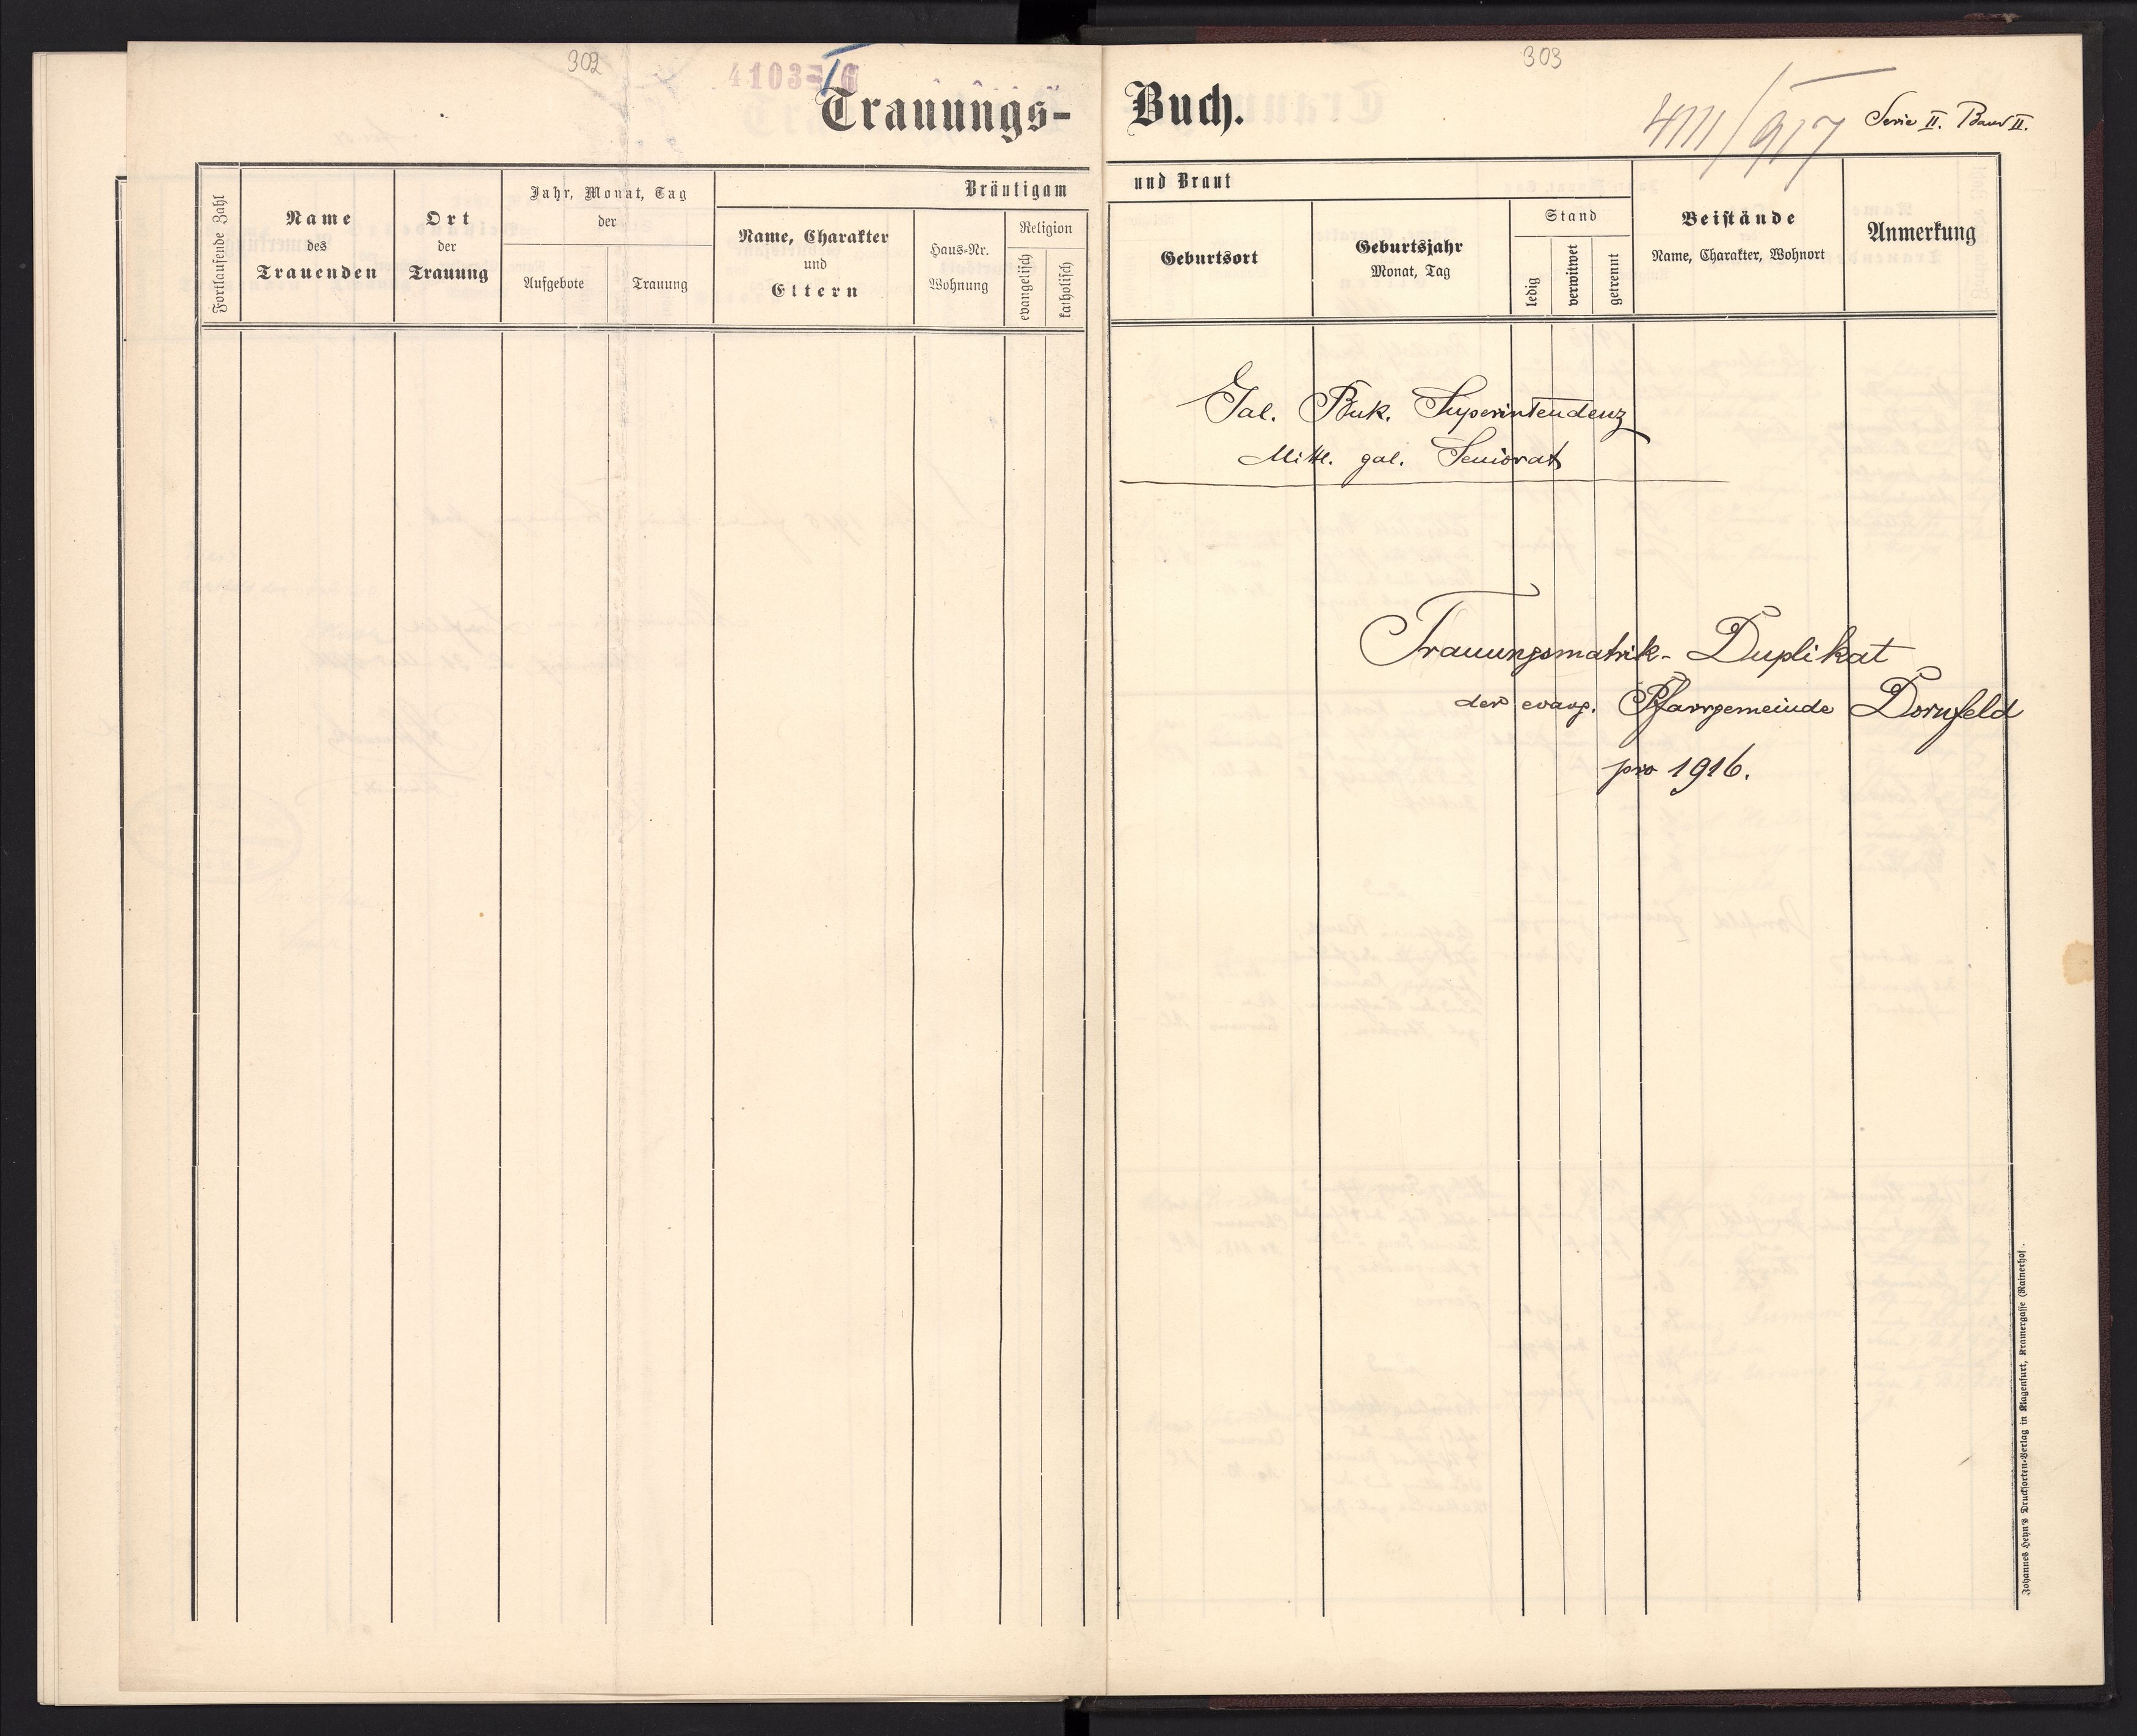 302
303
4103
Trauungs-
Buch.
4111/917
Serie II. Band II.
Fortlaufende Zahl
Name
des
Trauenden
Ort
der
Trauung
Jahr, Monat, Tag
der
Aufgebote
Trauung
Bräutigam
Name, Charakter
und
Eltern
Haus-Nr.
Wohnung
Religion
evangelisch
katholisch
und Braut
Geburtsort
Geburtsjahr
Monat, Tag
Stand
ledig
verwitwet
getrennt
Beistände
Name, Charakter, Wohnort
Anmerkung
Gal. Buk. Superintendenz
Mittl. gal. Seniorat
Trauungsmatrik-Duplikat
der evang. Pfarrgemeinde Dornfeld
pro 1916.
Johannes Heyn's Drucksorten-Verlag in Klagenfurt, Kramergasse (Rainerhof.